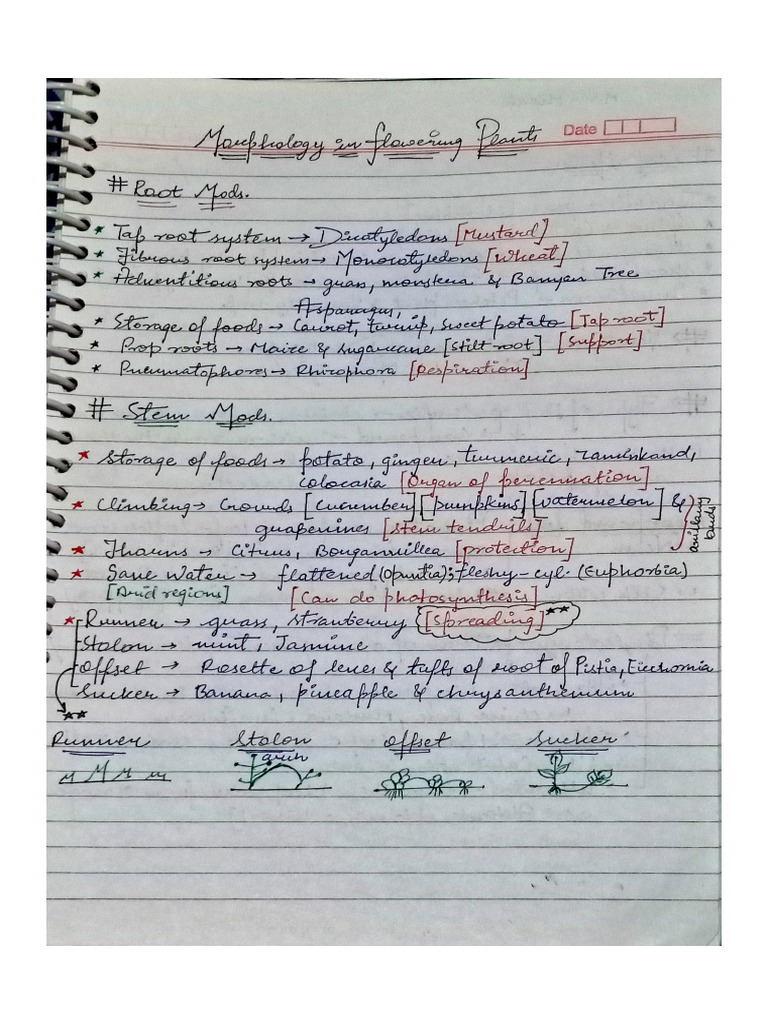 Morphology in flowering Plants
Date
# Root Mods.
* Tap root system → Dicotyledons [Mustard]
* Fibrous root system → Monocotyledons [Wheat]
* Adventitious roots → grass, monstera & Banyan Tree
Asparagus,
* Storage of foods → Carrot, turnip, sweet potato [Tap root]
* Prop roots → Maize & sugarcane [Stilt root] [Support]
* Pneumatophores → Rhizophora [Respiration]
# Stem Mods.
* Storage of foods → potato, ginger, turmeric, Zaminkand,
colocasia [Organ of perennation]
* Climbing → Grounds [cucumber], [pumpkins] [watermelon] &
grapevines [stem tendrils]
axillary buds
* Thorns → Citrus, Bougainvillea [protection]
* Save water → flattened (Opuntia); fleshy-cyl. (Euphorbia)
[Arid regions] [Can do photosynthesis]
* Runner → grass, strawberry [Spreading] **
Stolon → mint, Jasmine
Offset → Rosette of leves & tufts of root of Pistia,
Sucker → Banana, pineapple & chrysanthemum
**
Runner Stolon Offset Sucker
arch